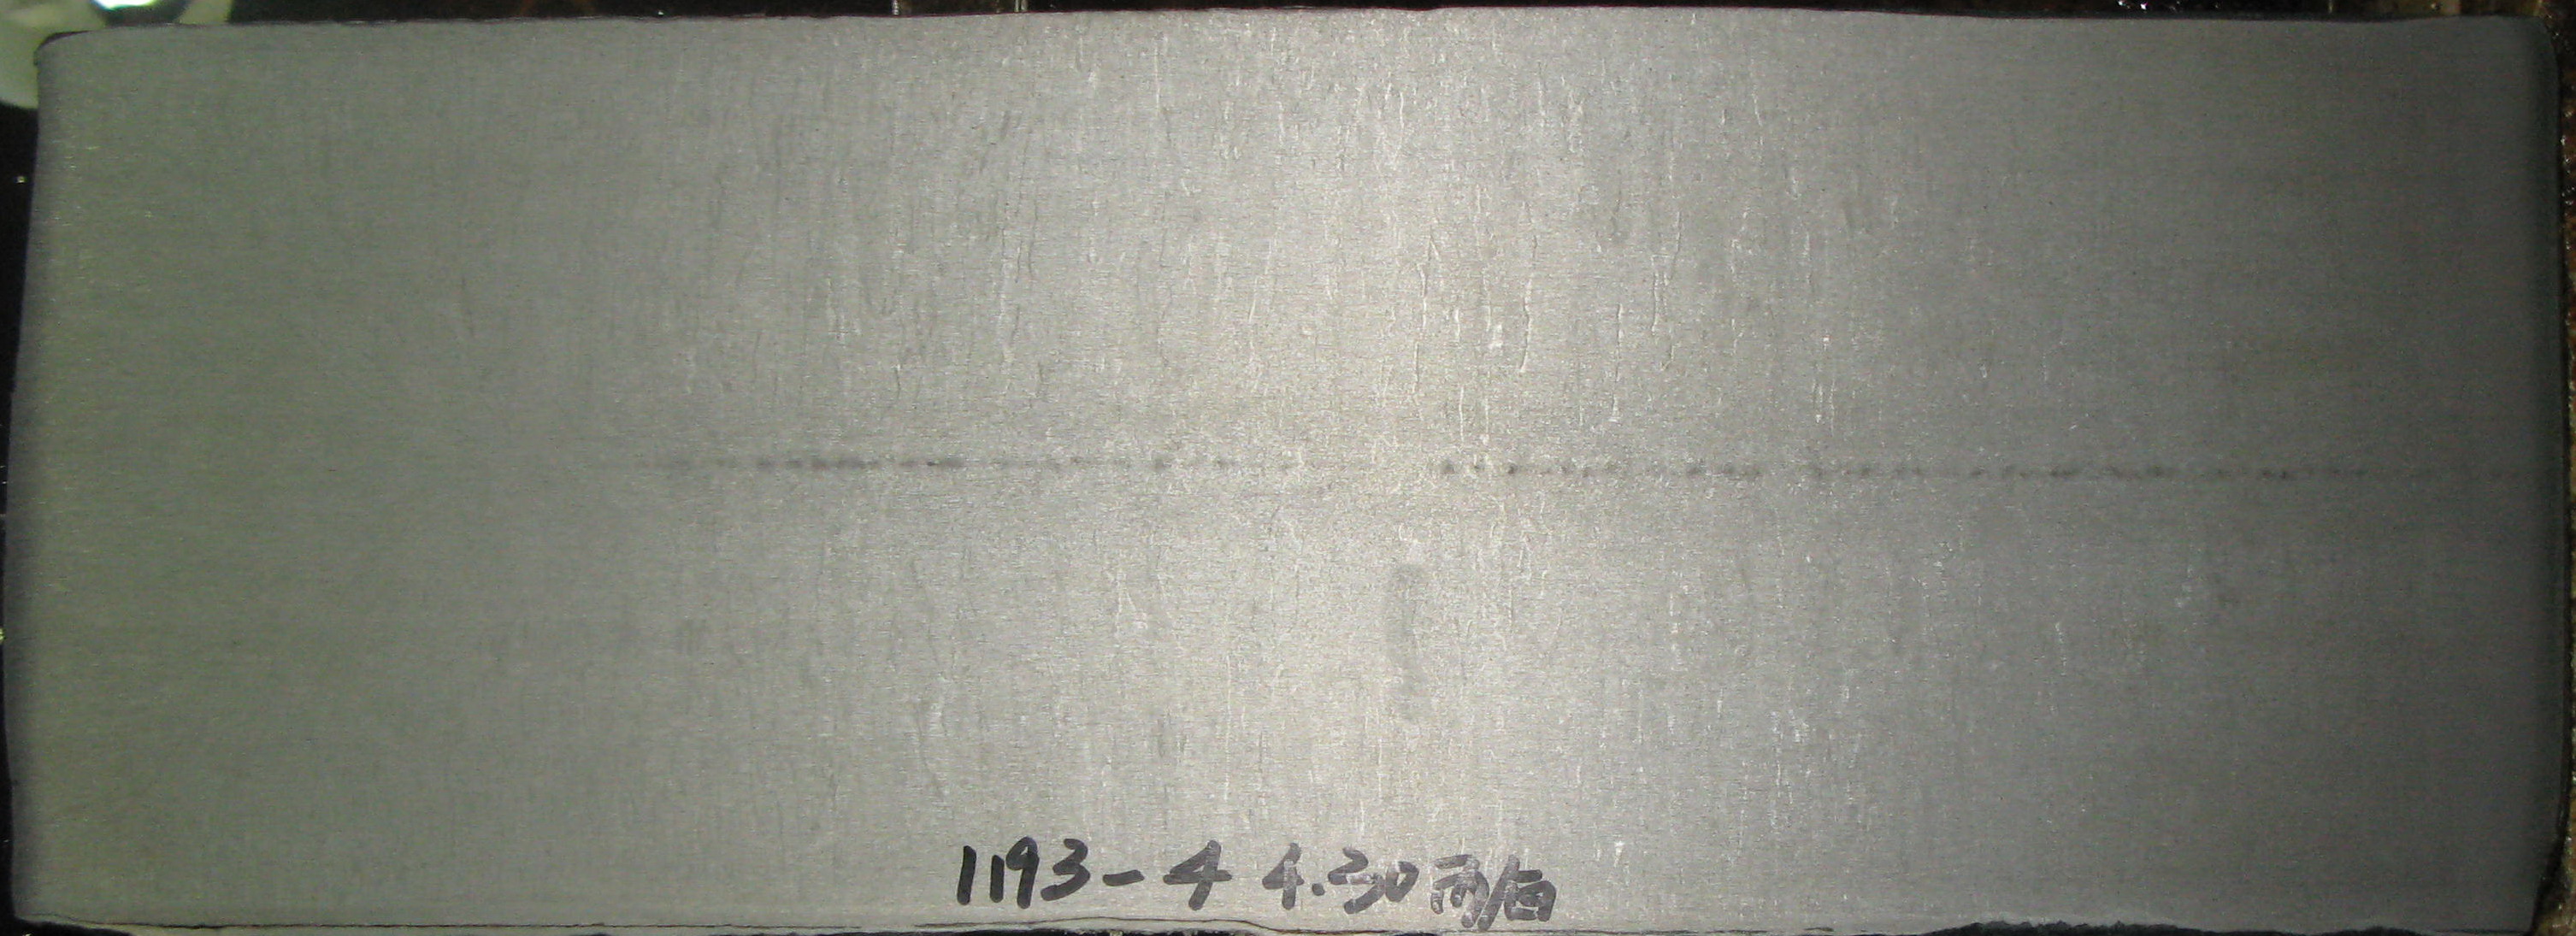 1193-4 4.30